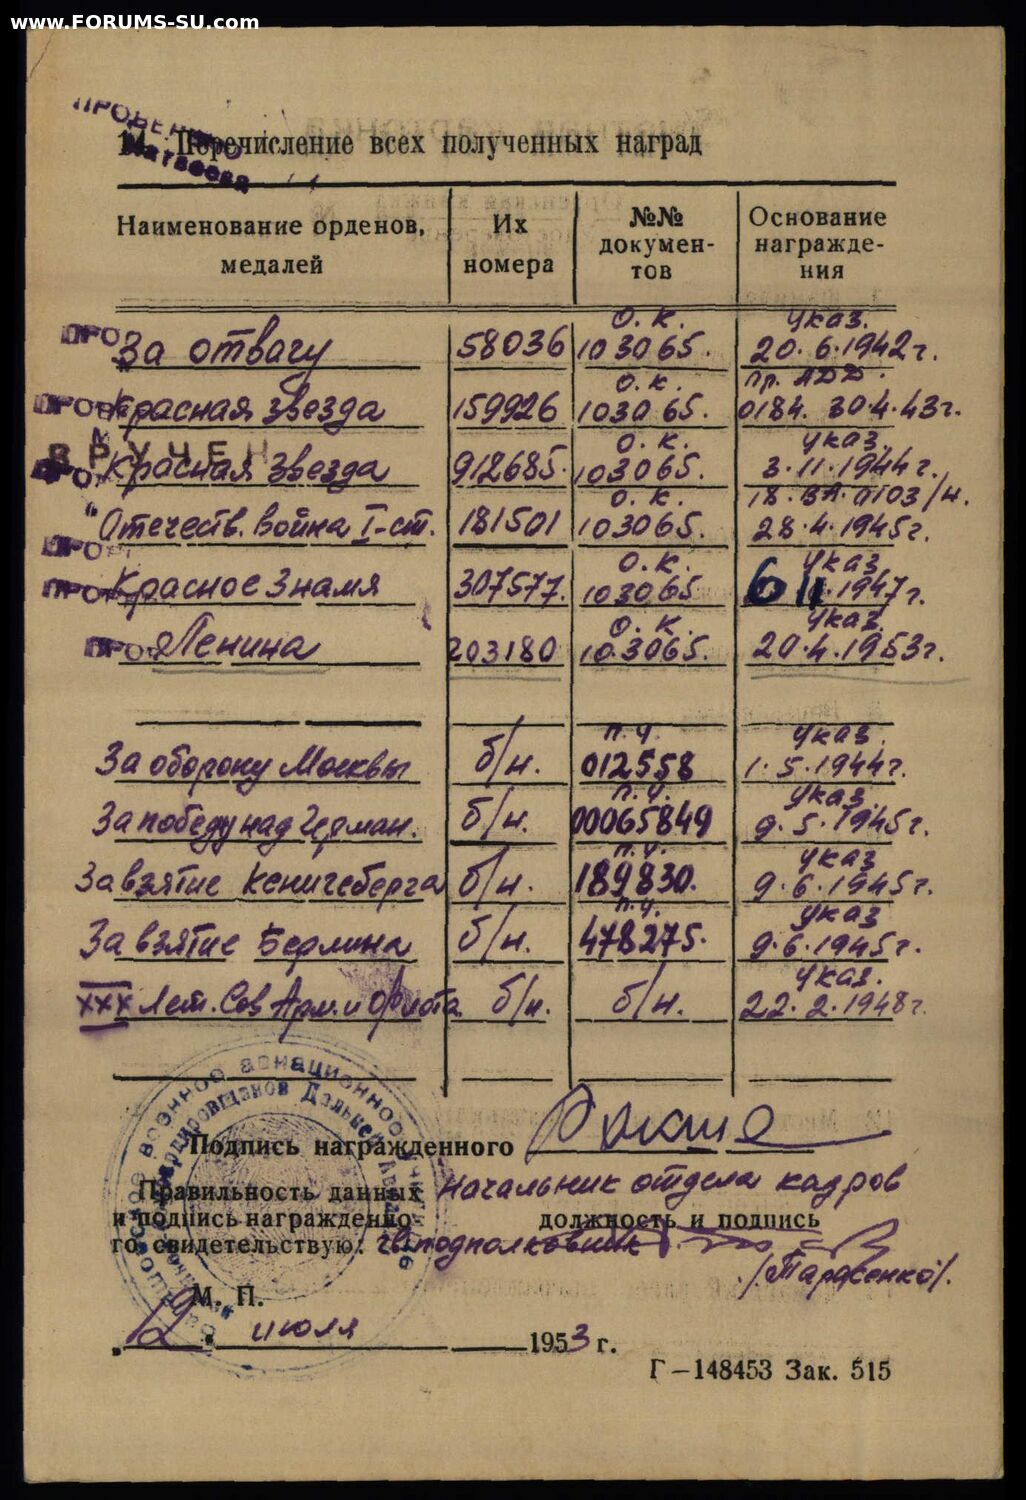 www.FORUMS-SU.com
ПРОВЕРЕНО
Матвеева
14. Перечисление всех полученных наград
Наименование орденов, медалей
Их номера
№№ докумен-тов
Основание награжде-ния
О. К. Указ.
За отвагу 58036 103065. 20.6.1942г.
О. К. Пр. АДД.
Красная Звезда 159926 103065. 0184. 30.4.43г.
ВРУЧЕН
О. К. Указ.
Красная Звезда 912685. 103065. 3.11.1944г.
О. К. 18. ВА. 0103/н.
Отечеств. Война I-ст. 181501 103065. 28.4.1945г.
О. К. Указ.
Красное Знамя 307577. 103065 6 11.1947г.
О. К. Указ.
Ленина 203180 103065. 20.4.1953г.
п.у. Указ.
За оборону Москвы б/н. 012558 1.5.1944г.
п.у. Указ.
За победу над Герман. б/н. 00065849 9.5.1945г.
п.у. Указ
За взятие Кенигсберга б/н. 189830. 9.6.1945г.
п.у. Указ
За взятие Берлина б/н. 478275. 9.6.1945г.
Указ.
XXX лет. Сов Арм. и Флота б/н. б/н. 22.2.1948г.
Подпись награжденного
Правильность данных Начальник отдела кадров
и подпись награжденно- должность и подпись
го свидетельствую: подполковник
/Тарасенко/.
М. П.
„12“ июля 1953 г.
Г—148453 Зак. 515